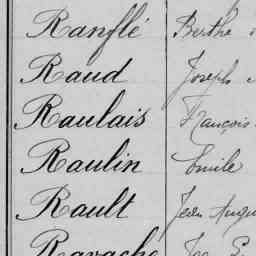 Ranflé Berthe
Raud Joseph
Raulais François
Raulin Emile
Rault Jean
Ravache